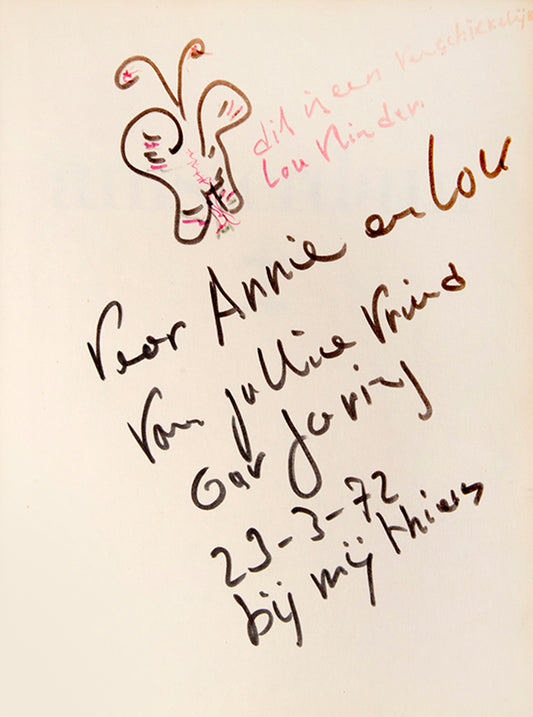 dit is een verschikkelijk
Lou Vlinder.
Voor Annie en Lou
Van jullie Vriend
Cor Jaring
23-3-72
bij mij thuis